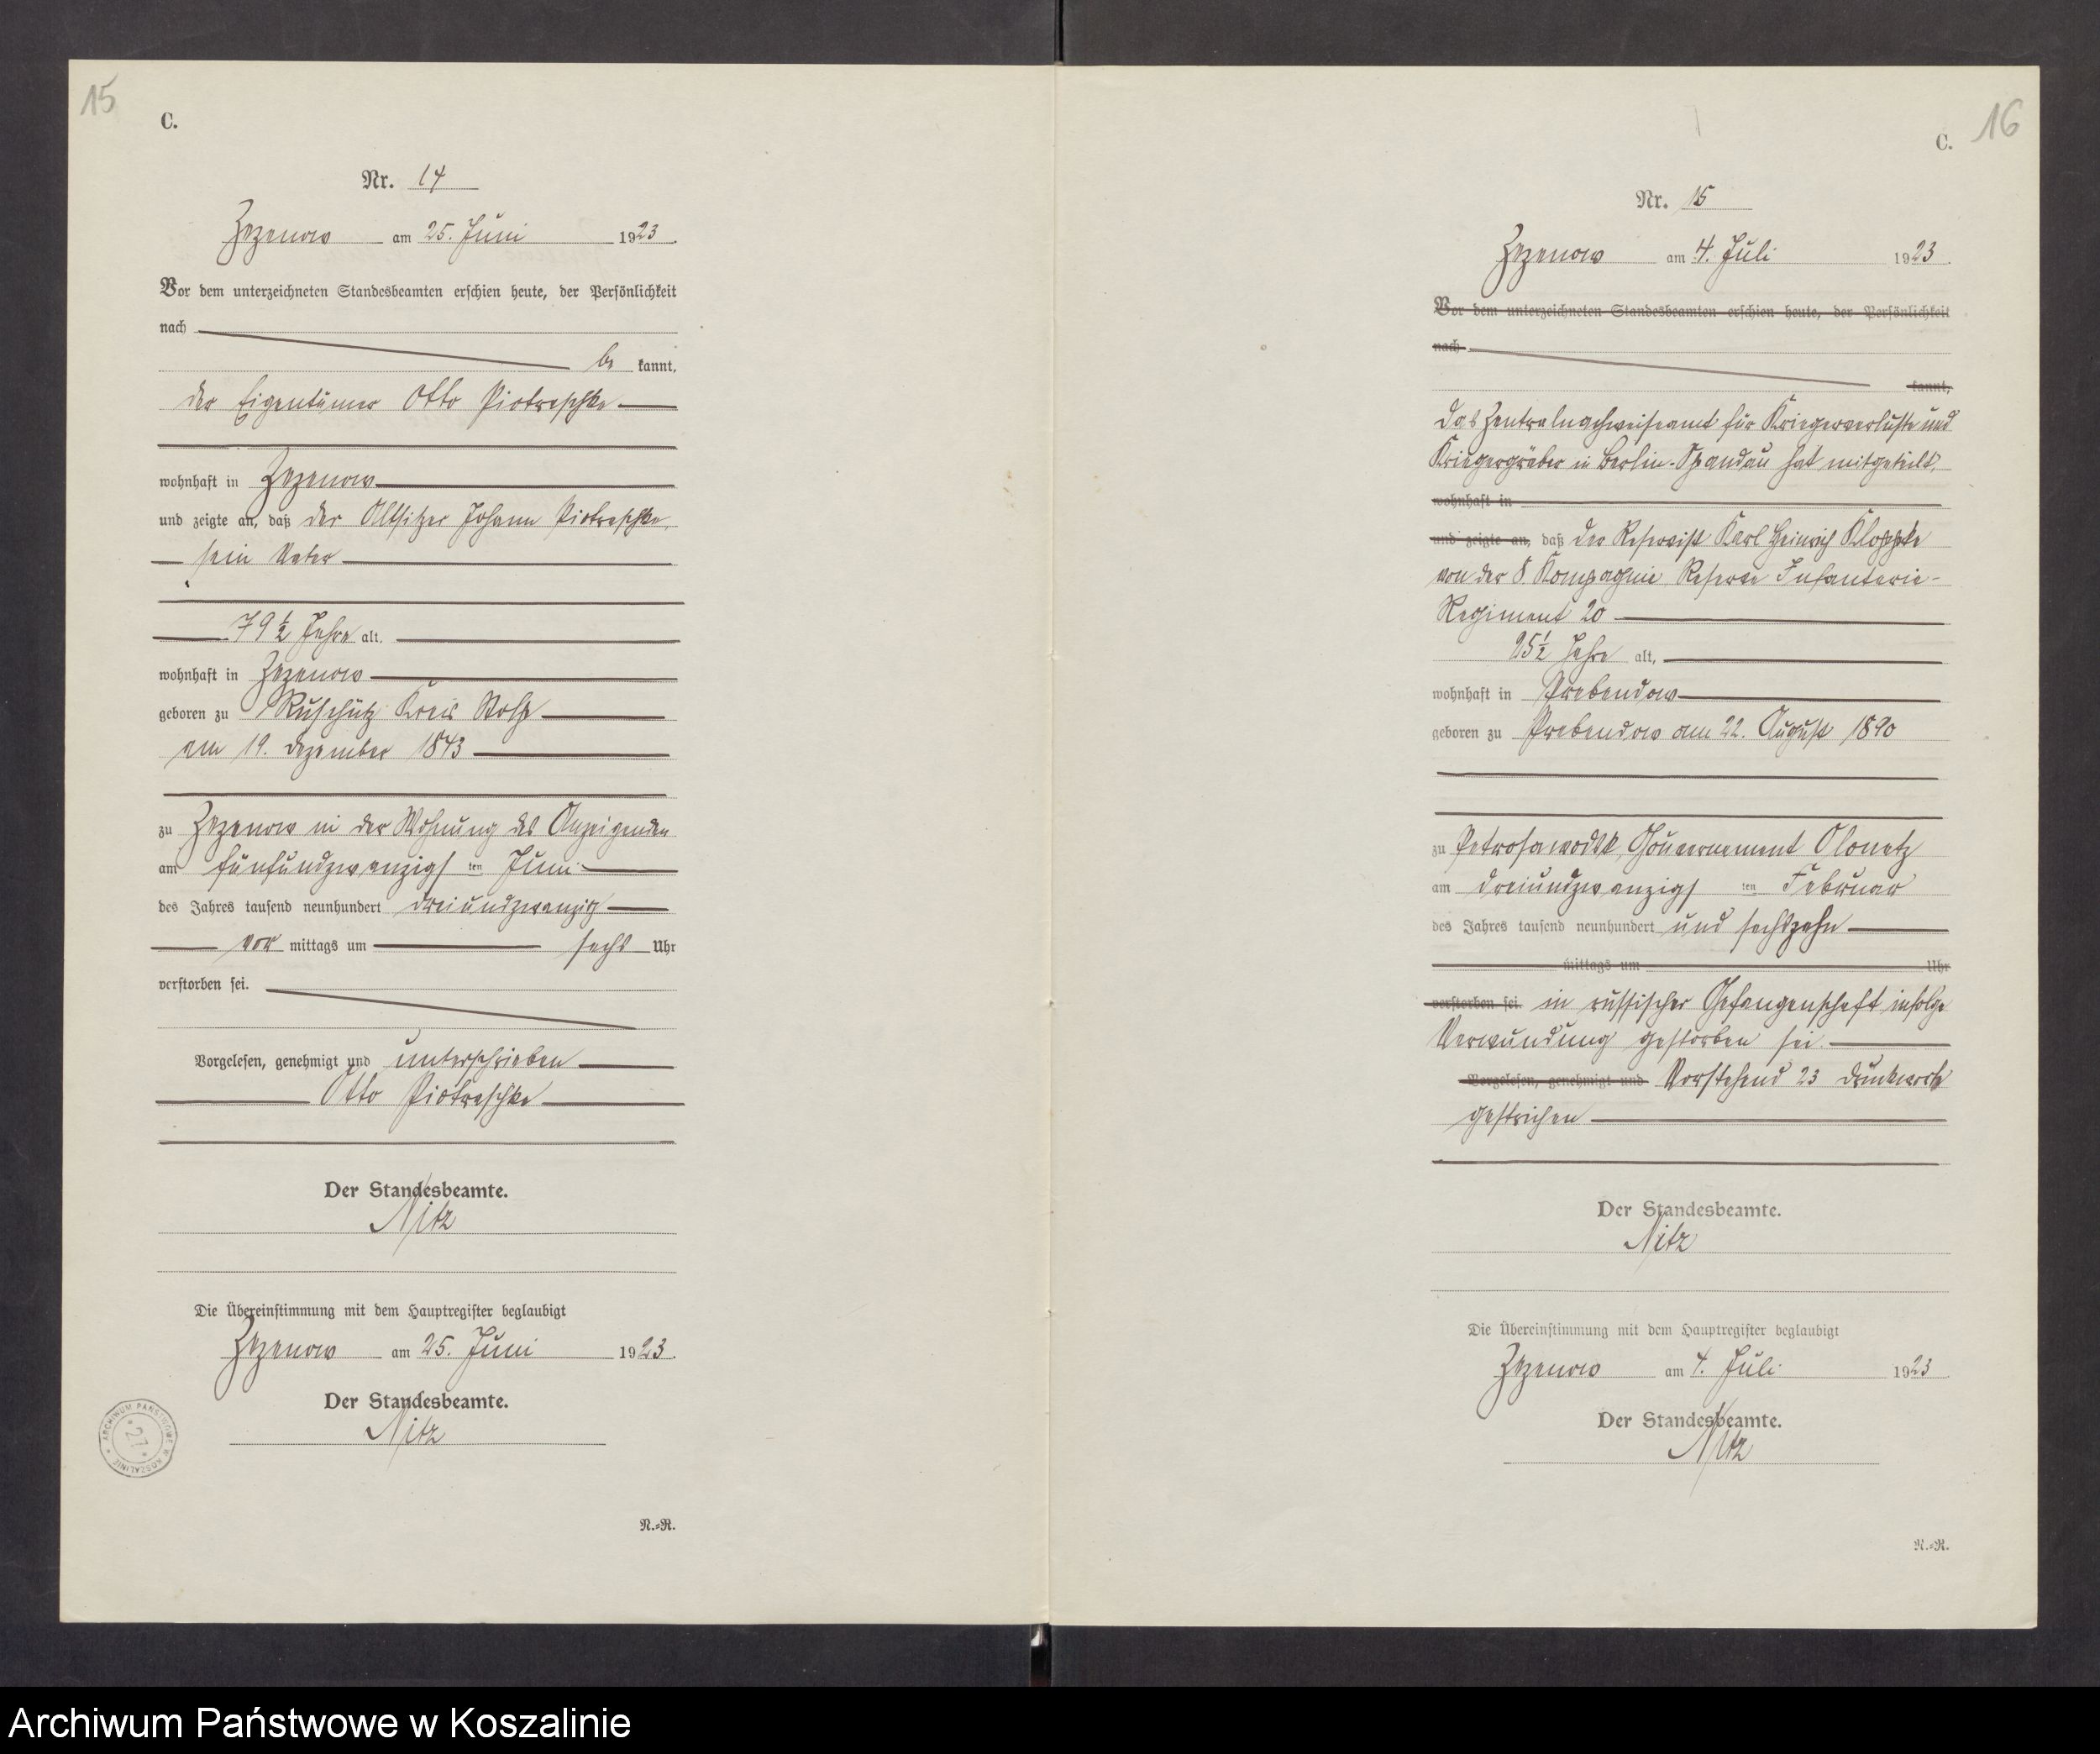 15
C.
Nr. 14
Zezenow am 25. Juni 1923.
Vor dem unterzeichneten Standesbeamten erschien heute, der Persönlichkeit
nach
be kannt,
der Eigentümer Otto Piotreschke
wohnhaft in Zezenow
und zeigte an, daß der Altsitzer Johann Piotreschke,
sein Vater
79 1/2 Jahre alt.
wohnhaft in Zezenow
geboren zu Ruschütz Kreis Stolp
am 19. Dezember 1843
zu Zezenow in der Wohnung des Anzeigenden
am fünfundzwanzigs ten Juni
des Jahres tausend neunhundert dreiundzwanzig
vor mittags um sechs Uhr
verstorben sei.
Vorgelesen, genehmigt und unterschrieben
Otto Piotreschke
Der Standesbeamte.
Nitz
Die Übereinstimmung mit dem Hauptregister beglaubigt
Zezenow am 25. Juni 1923.
Der Standesbeamte.
Nitz
ARCHIWUM PAŃSTWOWE W KOSZALINIE
27
N.=R.
16
C.
Nr. 15
Zezenow am 4. Juli 1923.
Vor dem unterzeichneten Standesbeamten erschien heute, der Persönlichkeit
nach
kannt,
Das Zentralnachweiseamt für Kriegerverluste und
Kriegergräber in Berlin-Spandau hat mitgeteilt,
wohnhaft in
und zeigte an, daß der Reservist Karl Heinrich Kloppke
von der 8. Kompagnie Reserve Infanterie-
Regiment 20
25 1/2 Jahre alt,
wohnhaft in Prebendow
geboren zu Prebendow am 22. August 1890
zu Petrosawodsk, Gouvernement Olonetz
am dreiundzwanzigs ten Februar
des Jahres tausend neunhundert und sechszehn
mittags um Uhr
verstorben sei. in russischer Gefangenschaft infolge
Verwundung gestorben sei.
Vorgelesen, genehmigt und Vorstehend 23 Druckworte
gestrichen
Der Standesbeamte.
Nitz
Die Übereinstimmung mit dem Hauptregister beglaubigt
Zezenow am 4. Juli 1923.
Der Standesbeamte.
Nitz
N.=R.
Archiwum Państwowe w Koszalinie